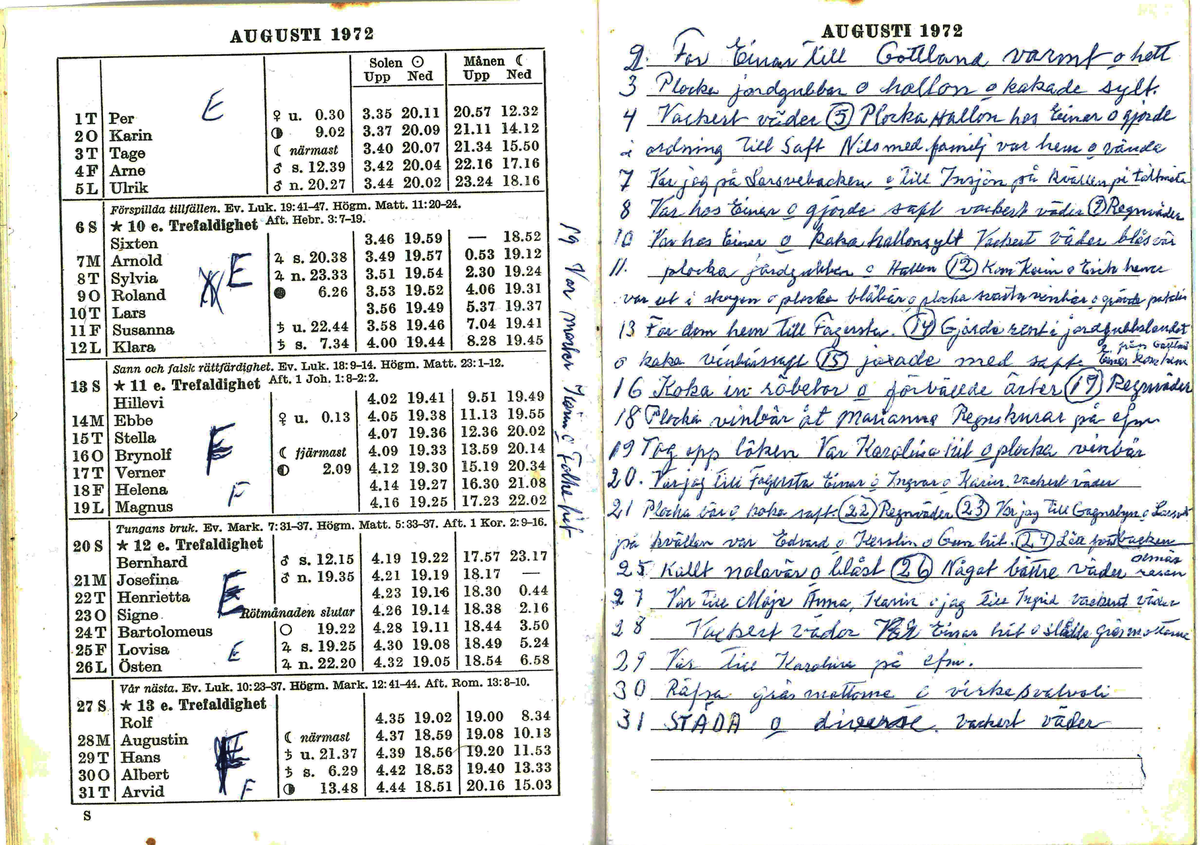 AUGUSTI 1972
Solen ☉ Månen ☾
Upp Ned Upp Ned
1 T Per E ♀ u. 0.30 3.35 20.11 20.57 12.32
2 O Karin ◑ 9.02 3.37 20.09 21.11 14.12
3 T Tage ☾ närmast 3.40 20.07 21.34 15.50
4 F Arne ♂ s. 12.39 3.42 20.04 22.16 17.16
5 L Ulrik ♂ n. 20.27 3.44 20.02 23.24 18.16
Förspillda tillfällen. Ev. Luk. 19:41-47. Högm. Matt. 11:20-24.
6 S ★ 10 e. Trefaldighet Aft. Hebr. 3:7-19.
Sixten 3.46 19.59 — 18.52
7 M Arnold E ♃ s. 20.38 3.49 19.57 0.53 19.12
8 T Sylvia ♃ n. 23.33 3.51 19.54 2.30 19.24
9 O Roland ● 6.26 3.53 19.52 4.06 19.31
10 T Lars 3.56 19.49 5.37 19.37
11 F Susanna ♄ u. 22.44 3.58 19.46 7.04 19.41
12 L Klara ♄ s. 7.34 4.00 19.44 8.28 19.45
Sann och falsk rättfärdighet. Ev. Luk. 18:9-14. Högm. Matt. 23:1-12.
13 S ★ 11 e. Trefaldighet Aft. 1 Joh. 1:8-2:2.
Hillevi 4.02 19.41 9.51 19.49
14 M Ebbe ♀ u. 0.13 4.05 19.38 11.13 19.55
15 T Stella 4.07 19.36 12.36 20.02
16 O Brynolf ☾ fjärmast 4.09 19.33 13.59 20.14
17 T Verner ◐ 2.09 4.12 19.30 15.19 20.34
18 F Helena F 4.14 19.27 16.30 21.08
19 L Magnus 4.16 19.25 17.23 22.02
Tungans bruk. Ev. Mark. 7:31-37. Högm. Matt. 5:33-37. Aft. 1 Kor. 2:9-16.
20 S ★ 12 e. Trefaldighet
Bernhard ♂ s. 12.15 4.19 19.22 17.57 23.17
21 M Josefina ♂ n. 19.35 4.21 19.19 18.17 —
22 T Henrietta E 4.23 19.16 18.30 0.44
23 O Signe Rötmånaden slutar 4.26 19.14 18.38 2.16
24 T Bartolomeus ○ 19.22 4.28 19.11 18.44 3.50
25 F Lovisa E ♃ s. 19.25 4.30 19.08 18.49 5.24
26 L Östen ♃ n. 22.20 4.32 19.05 18.54 6.58
Vår nästa. Ev. Luk. 10:23-37. Högm. Mark. 12:41-44. Aft. Rom. 13:8-10.
27 S ★ 13 e. Trefaldighet
Rolf 4.35 19.02 19.00 8.34
28 M Augustin ☾ närmast 4.37 18.59 19.08 10.13
29 T Hans ♄ u. 21.37 4.39 18.56 19.20 11.53
30 O Albert ♄ s. 6.29 4.42 18.53 19.40 13.33
31 T Arvid F ◑ 13.48 4.44 18.51 20.16 15.03
S
19 Var Karin o Folke hit
AUGUSTI 1972
2. For Einar till Gottland varmt o hett
3 Plocka jordgubbar o hallon o kokade sylt.
4 Vackert väder (5) Plocka Hallon hos Einar o gjorde
i ordning till Saft Nils med familj var hem o vända
7 Var jag på Larsvebacken o till Insjön på kvällen på tältmöte
8 Var hos Einar o gjorde saft vackert väder (9) Regnväder
10 Var hos Einar o koka hallonsylt Vackert väder
11. plocka jordgubbar o Hallon (12) Kom Karin o Erik
var ut i skogen o plocka blåbär o plocka svarta vinbär o gjorde
13 For dom hem till Fagersta. (14) Gjorde rent i jordgubbslandet
o koka vinbärssaft (15) med saft Einar kom hem från Gottland
16 Koka in rödbetor o förvällde ärter (17) Regnväder
18 Plocka vinbär åt Marianne Regnskurar på efm
19 Tog upp löken Var Karolina hit o plocka vinbär
20. Var jag till Fagersta Einar o Ingvar o Karin. vackert väder
21 Plocka bär o koka saft (22) Regnväder (23) Var jag till Gagnsbyn o
på kvällen var Edvard o Kerstin o Gun hit. (24)
25 Kallt nolavär o blåst (26) Något bättre väder
27 Var till Möje Anna, Karin o jag till Ingrid vackert väder
28 Vackert väder Var Einar hit o slådde gräsmattorna
29 Var till Karolina på efm.
30 Räfsa gräsmattorna o
31 STÄDA o diverse. vackert väder